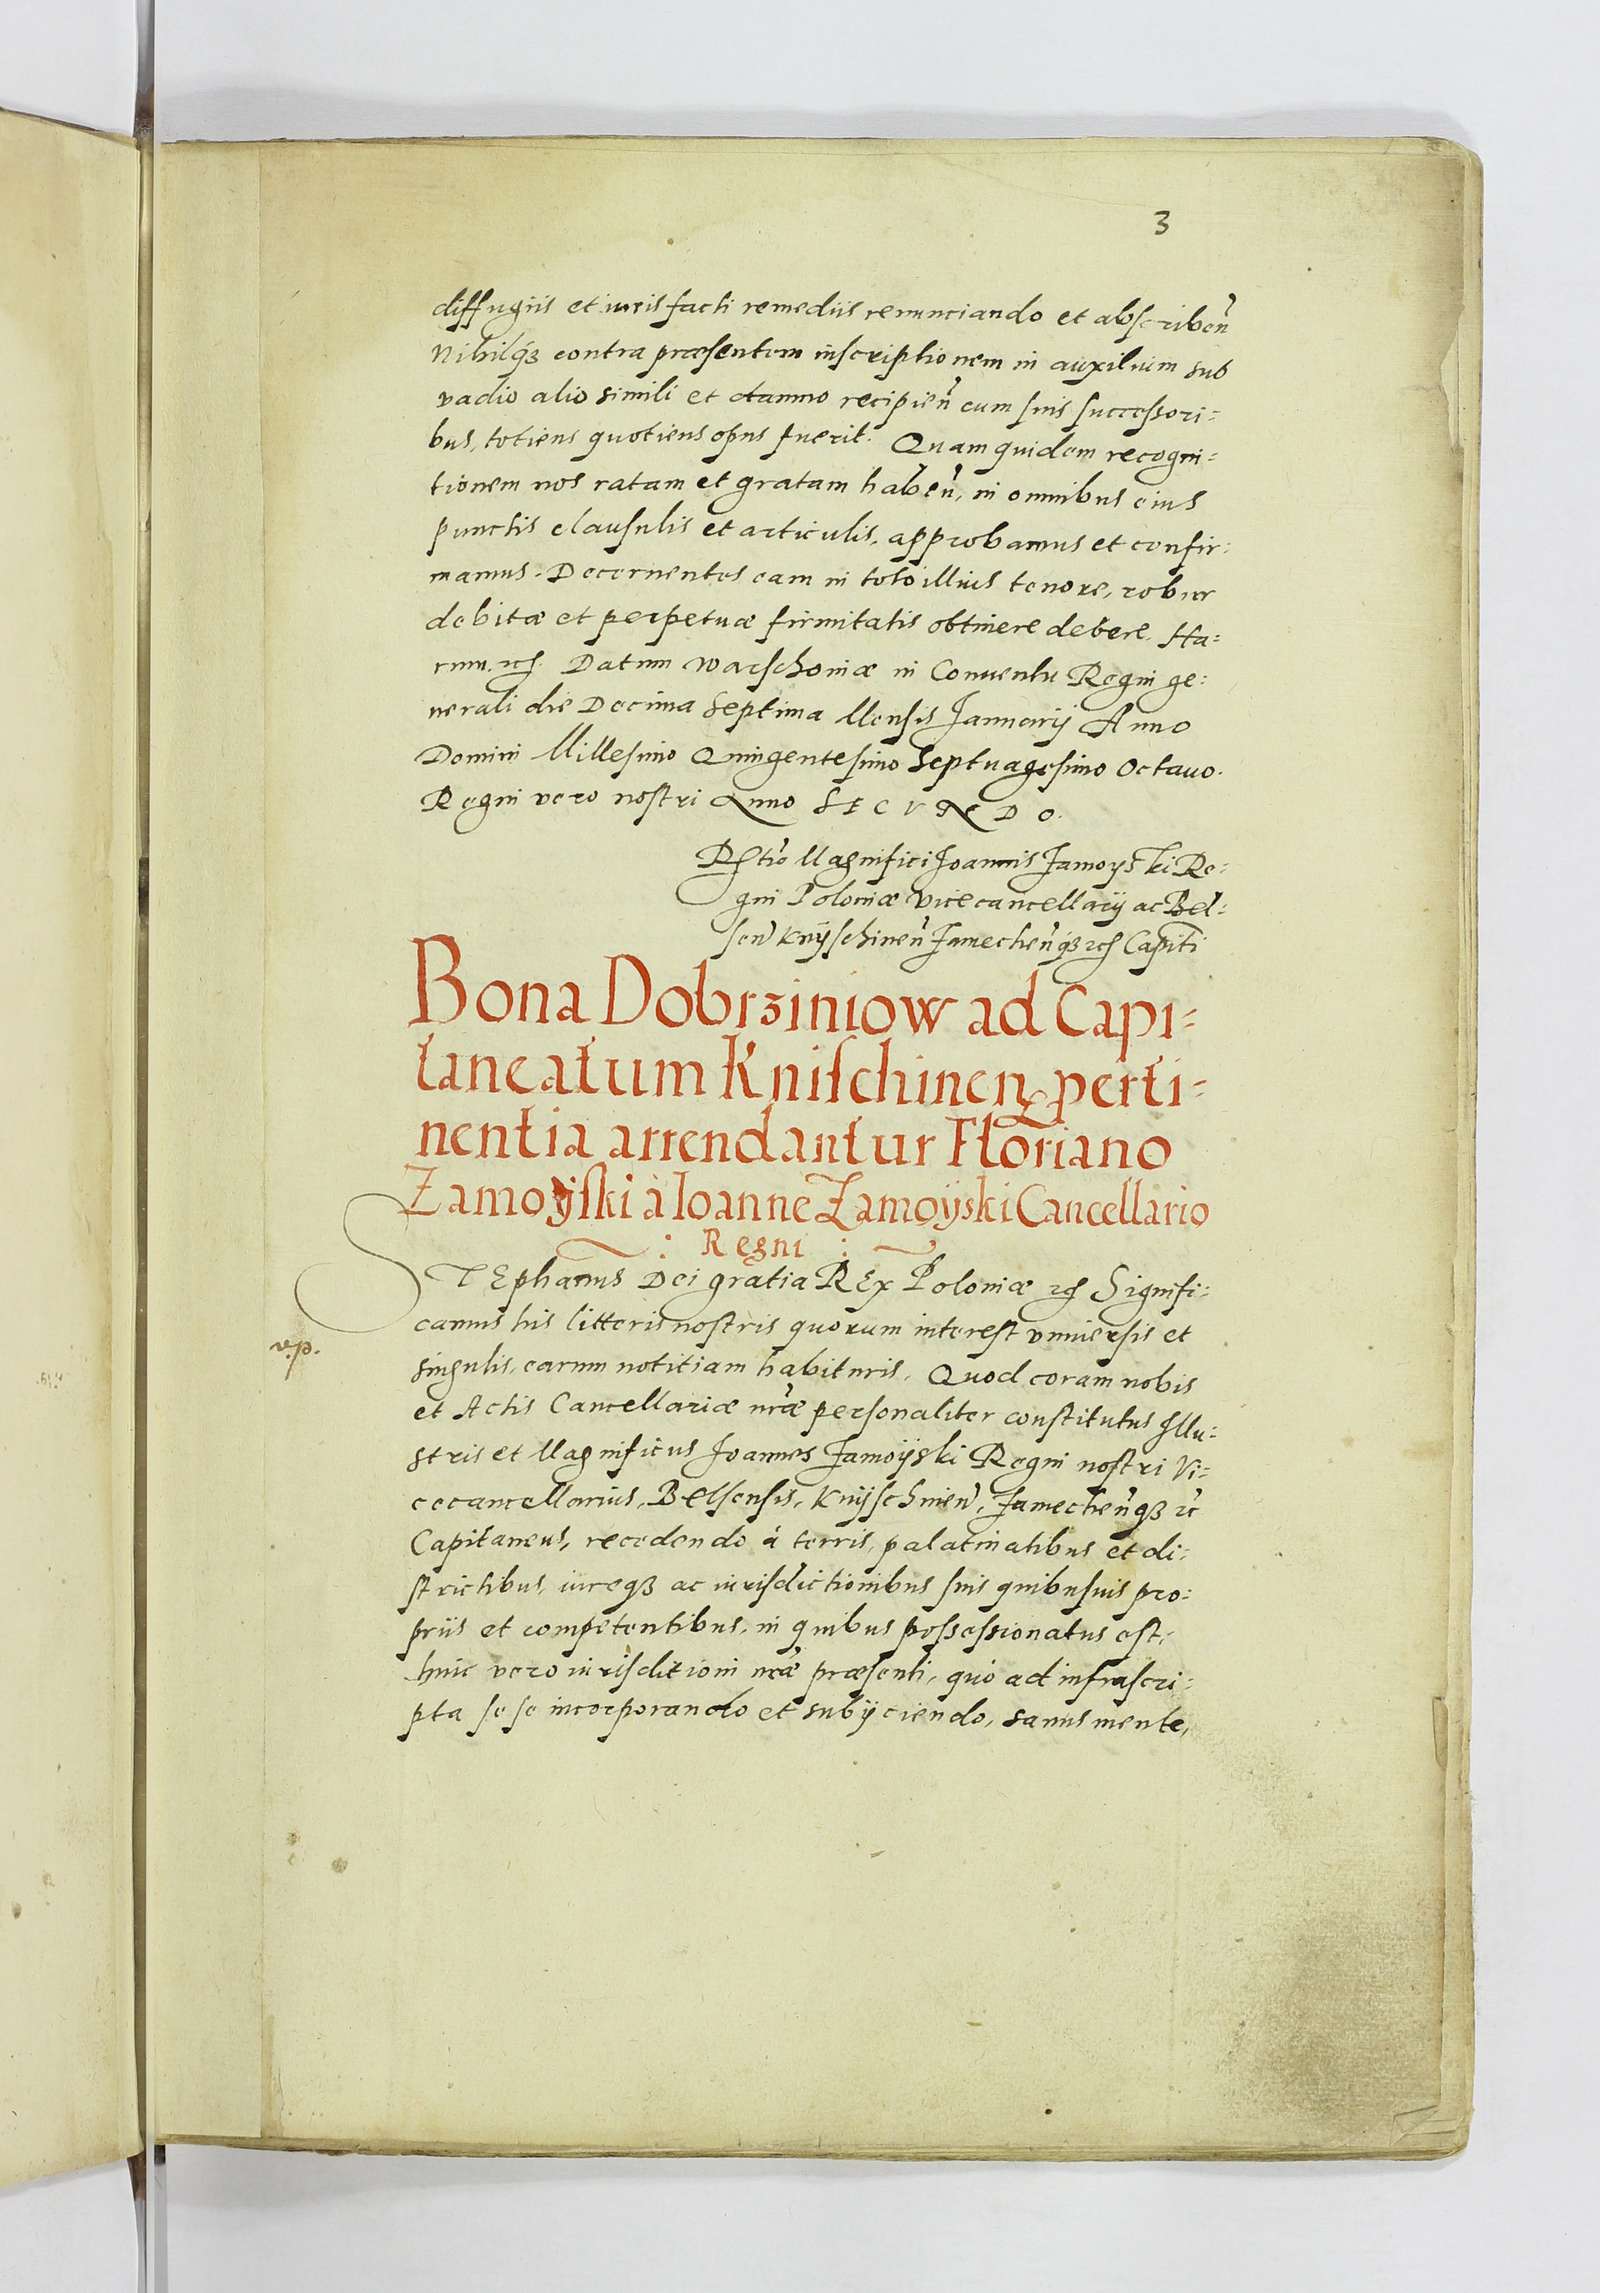 3
diffugiis et iuris facti remediis renunciando et abscriben̄
Nihilq́ꝫ contra præsentem inscriptionem in auxilium sub
vadio alio simili et damno recipien̄ cum suis successori=
bus, totiens quotiens opus fuerit. Quam quidem recogni=
tionem nos ratam et gratam haben̄, in omnibus eius
punctis clausulis et articulis, approbamus et confir=
mamus. Decernentes eam in toto illius tenore, robur
debitæ et perpetuæ firmitatis obtinere debere. Ha=
rum. etc. Datum Warschoviæ in Conuentu Regni ge=
nerali die Decima Septima Mensis Januarij Anno
Domini Millesimo Quingentesimo Septuagesimo Octauo.
Regni vero nostri Anno SECVNDO.
Rltio Magnifici Joannis Zamoyski Re=
gni Poloniæ Vicecancellarij ac Bel=
sen̄ Knyschinen̄ Zamechen̄qꝫ etc Capiti
Bona Dobrziniow ad Capi=
taneatum Knischinen̄ perti=
nentia arrendantur Floriano
Zamoÿski à Ioanne Zamoÿski Cancellario
: Regni :
STEphanus Dei gratia REx Poloniæ etc Signifi=
camus his litteris nostris quorum interest vniuersis et
v.p.
singulis, earum notitiam habituris. Quod coram nobis
et Actis Cancellariæ nr̄æ personaliter constitutus Illu=
stris et Magnificus Joannes Zamoÿski Regni nostri Vi=
cecancellarius, Belsensis, Knÿschinen̄, Zamechen̄qꝫ etc
Capitaneus, recedendo à terris, palatinatibus et di=
strictibus, iureqꝫ ac iurisdictionibus suis quibusuis pro=
priis et competentibus, in quibus possessionatus est,
huic vero iurisditioni nr̄æ præsenti, quo ad infrascri=
pta sese incorporando et subÿciendo, sanus mente,